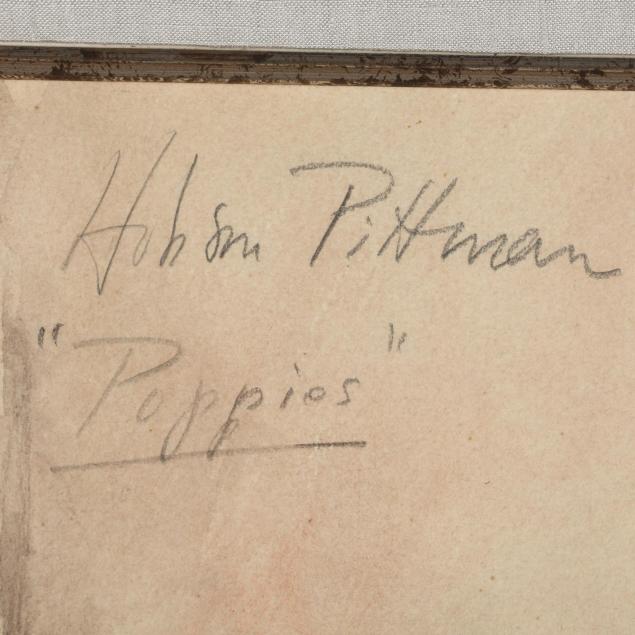 Hobson Pittman
"Poppies"